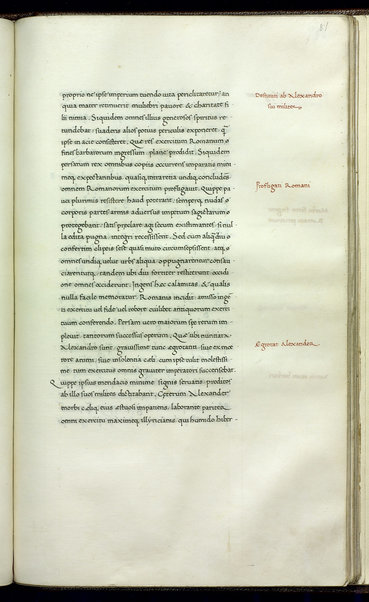 81
proprio ne ipse imperium tuendo uita periclitaretur, an
quia mater retinuerit muliebri pauore & charitate fi
lii nimia. Siquidem omnes illius generosos spiritus re
tundebat, suadens alios potius periculis exponeret, q̄
ipse in acie consisteret. Que res exercitum Romanum
fines barbarorum ingressum, plane prodidit. Siquidem
persarum rex omnibus copiis occurrens imparatis nimi
rumq expectantibus, quasiq intra retia undiq concludēs
omnem Romanorum exercitum profligauit. Quippe pau
ci plurimis resistere haud poterant, semperq nudas
corporis partes armis aduersus impetum sagittarum
protegebant, satis preclare agi secum existimantes, si nul
la edita pugna, integri recessissent. Sed cum aliquādiu
confertim clipeis sese quasi muro circumsepsissent, atq
omnes undiq uelut urbs aliqua oppugnarentur conau
ciarenturq, tandem ubi diu fortiter restiterant occidi
one omnes occiderunt. Ingens hec calamitas & qualis
nulla facile memoratur, Romanis incidit, amisso inge
ti exercitu uel fide uel robore cuilibet antiquorum exerci
tuum conferendo. Persam uero maiorum spe rerum im
pleuit, tantorum successus operum. Que ubi nuntiata
Alexandro sunt, grauissime tunc egrotanti, siue ex me
rore animi, siue insolentia cęli, cum ipse tulit molestissi
me, tum exercitus omnis grauiter imperatori succensebat.
Quippe ipsius mendacio minime signis seruatis, proditos
ab illo suos milites dictitabant. Ceterum Alexander
morbi celiq eius estuosi impatiens, laborante pariter
omni exercitu maximeq illyricianis, qui humido hiber-
Destituti ab Alexandro
sui milites
Profligati Romani
Egrotat Alexander